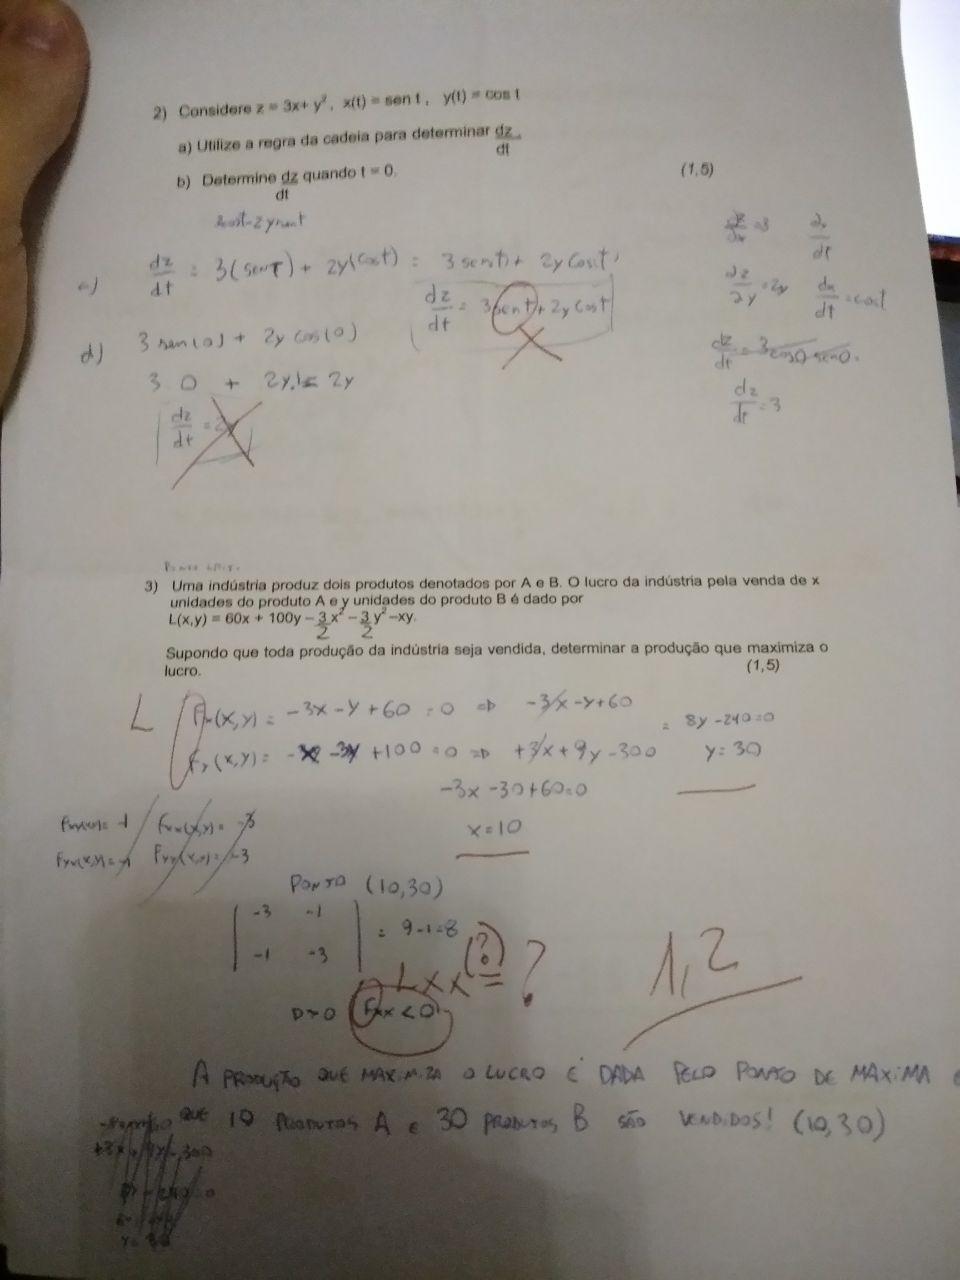 2) Considere z = 3x+ y², x(t) = sen t , y(t) = cos t
a) Utilize a regra da cadeia para determinar dz/dt.
b) Determine dz/dt quando t = 0.
(1,5)
∂z/∂x = 3
∂z/∂y = 2y dx/dt = cost
dz/dt = 3
dz/dt = 3(sent) + 2y(cost) = 3 sent + 2y cost
dz/dt = 3 sent + 2y cost
3 sen(0) + 2y cos(0)
3 . 0 + 2y.1 = 2y
dz/dt = 2y
3) Uma indústria produz dois produtos denotados por A e B. O lucro da indústria pela venda de x
unidades do produto A e y unidades do produto B é dado por
L(x,y) = 60x + 100y – 3/2 x² – 3/2 y² –xy.
Supondo que toda produção da indústria seja vendida, determinar a produção que maximiza o
lucro.
(1,5)
L
Fx(x,y) = -3x - y + 60 = 0 => -3x - y + 60
= 8y - 240 = 0
Fy(x,y) = -x -3y + 100 = 0 => +3x + 9y - 300
y = 30
-3x - 30 + 60 = 0
x = 10
Fxy(x,y) = -1 Fxx(x,y) = -3
Fyx(x,y) = -1 Fyy(x,y) = -3
PONTO (10,30)
| -3 -1 |
| -1 -3 | = 9 - 1 = 8
Lxx (?) = ?
1,2
D > 0 Fxx < 0
A PRODUÇÃO QUE MAXIMIZA O LUCRO É DADA PELO PONTO DE MAXIMA E
QUE 10 PRODUTOS A E 30 PRODUTOS B SÃO VENDIDOS! (10,30)